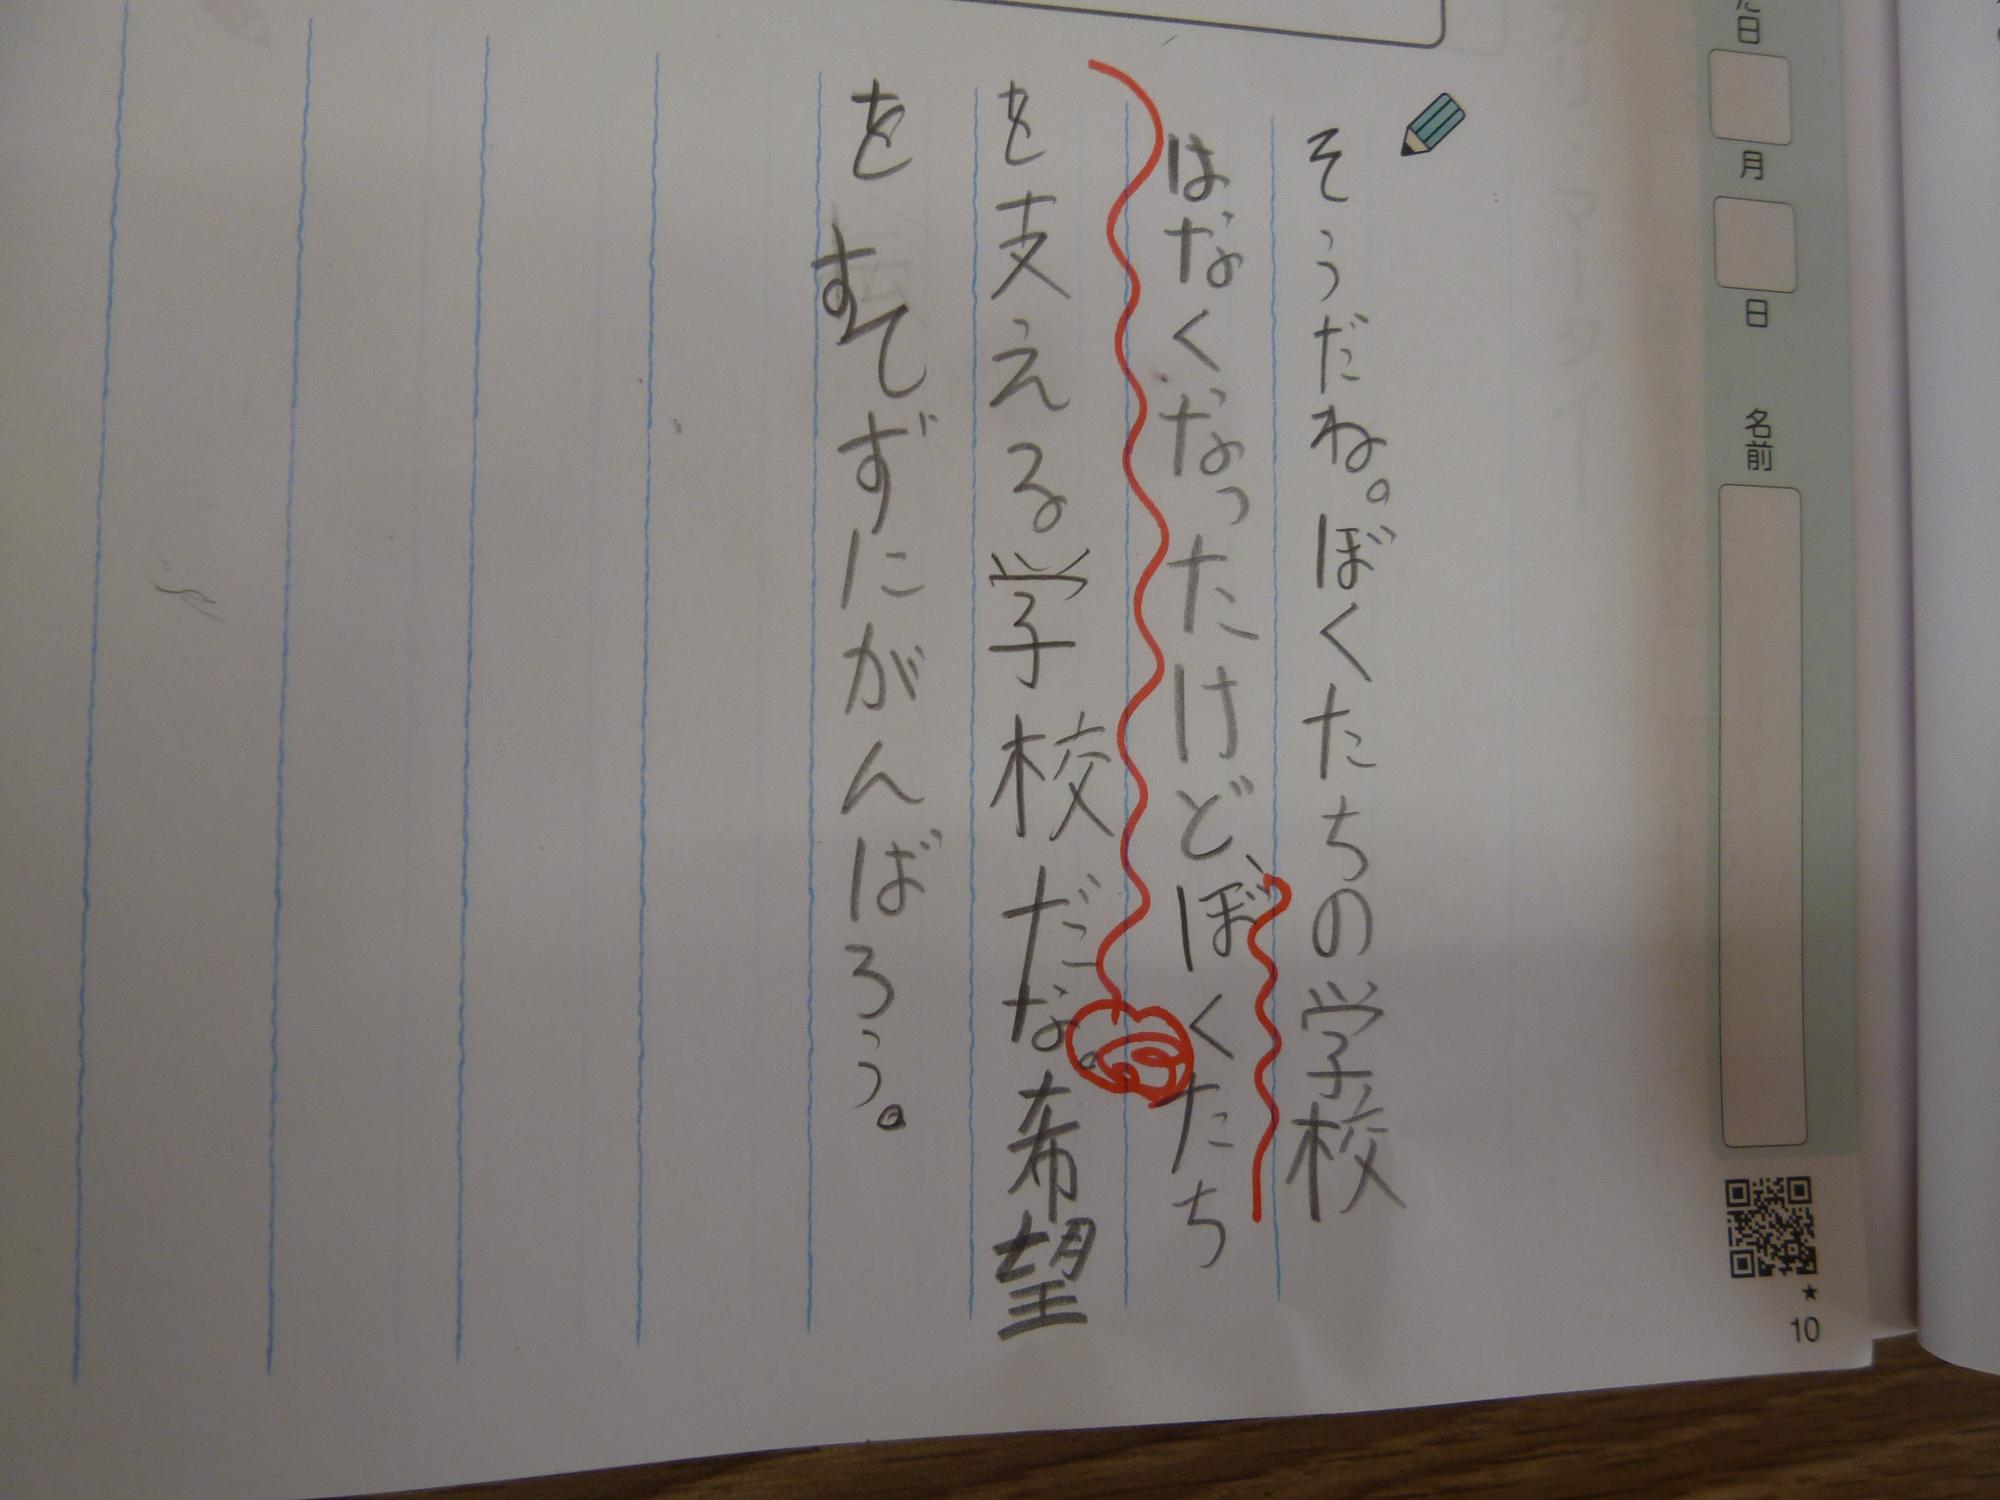 た日
月
日
名前
そうだね。ぼくたちの学校
はなくなったけど、ぼくたち
を支える学校だな。希望
をすてずにがんばろう。
★
10